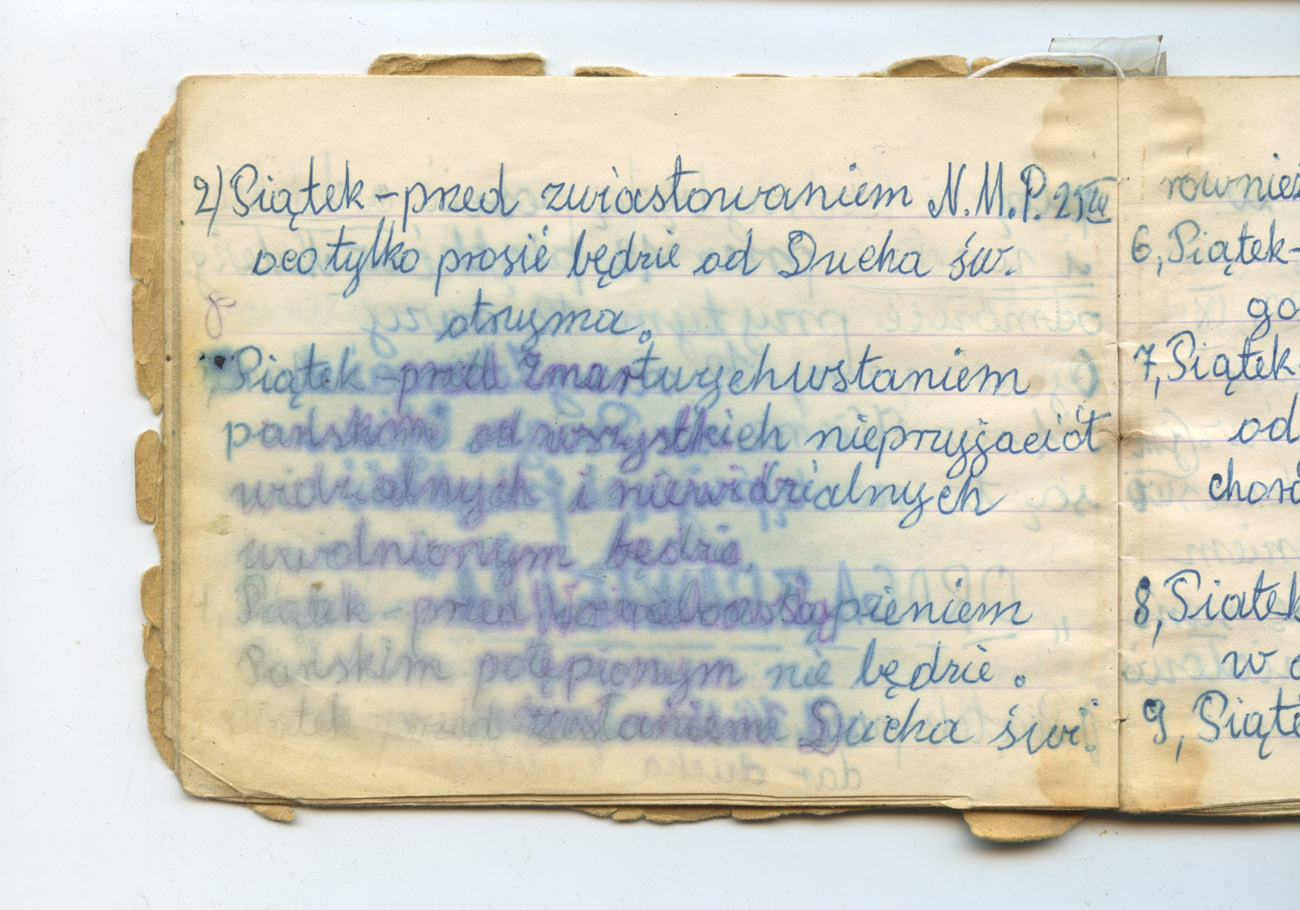 2) Piątek – przed zwiastowaniem N.M.P. 25 III
oco tylko prosić będzie od Ducha św.
otrzyma.
Piątek – przed Zmartwychwstaniem
pańskim od wszystkich nieprzyjaciół
widzialnych i niewidzialnych
uwolnionym będzie
4, Piątek – przed
Pańskim potępionym nie będzie.
Piątek przed zesłaniem Ducha świ.
również
6, Piątek –
go
7, Piątek –
od
8, Piatek
w
9, Piąte